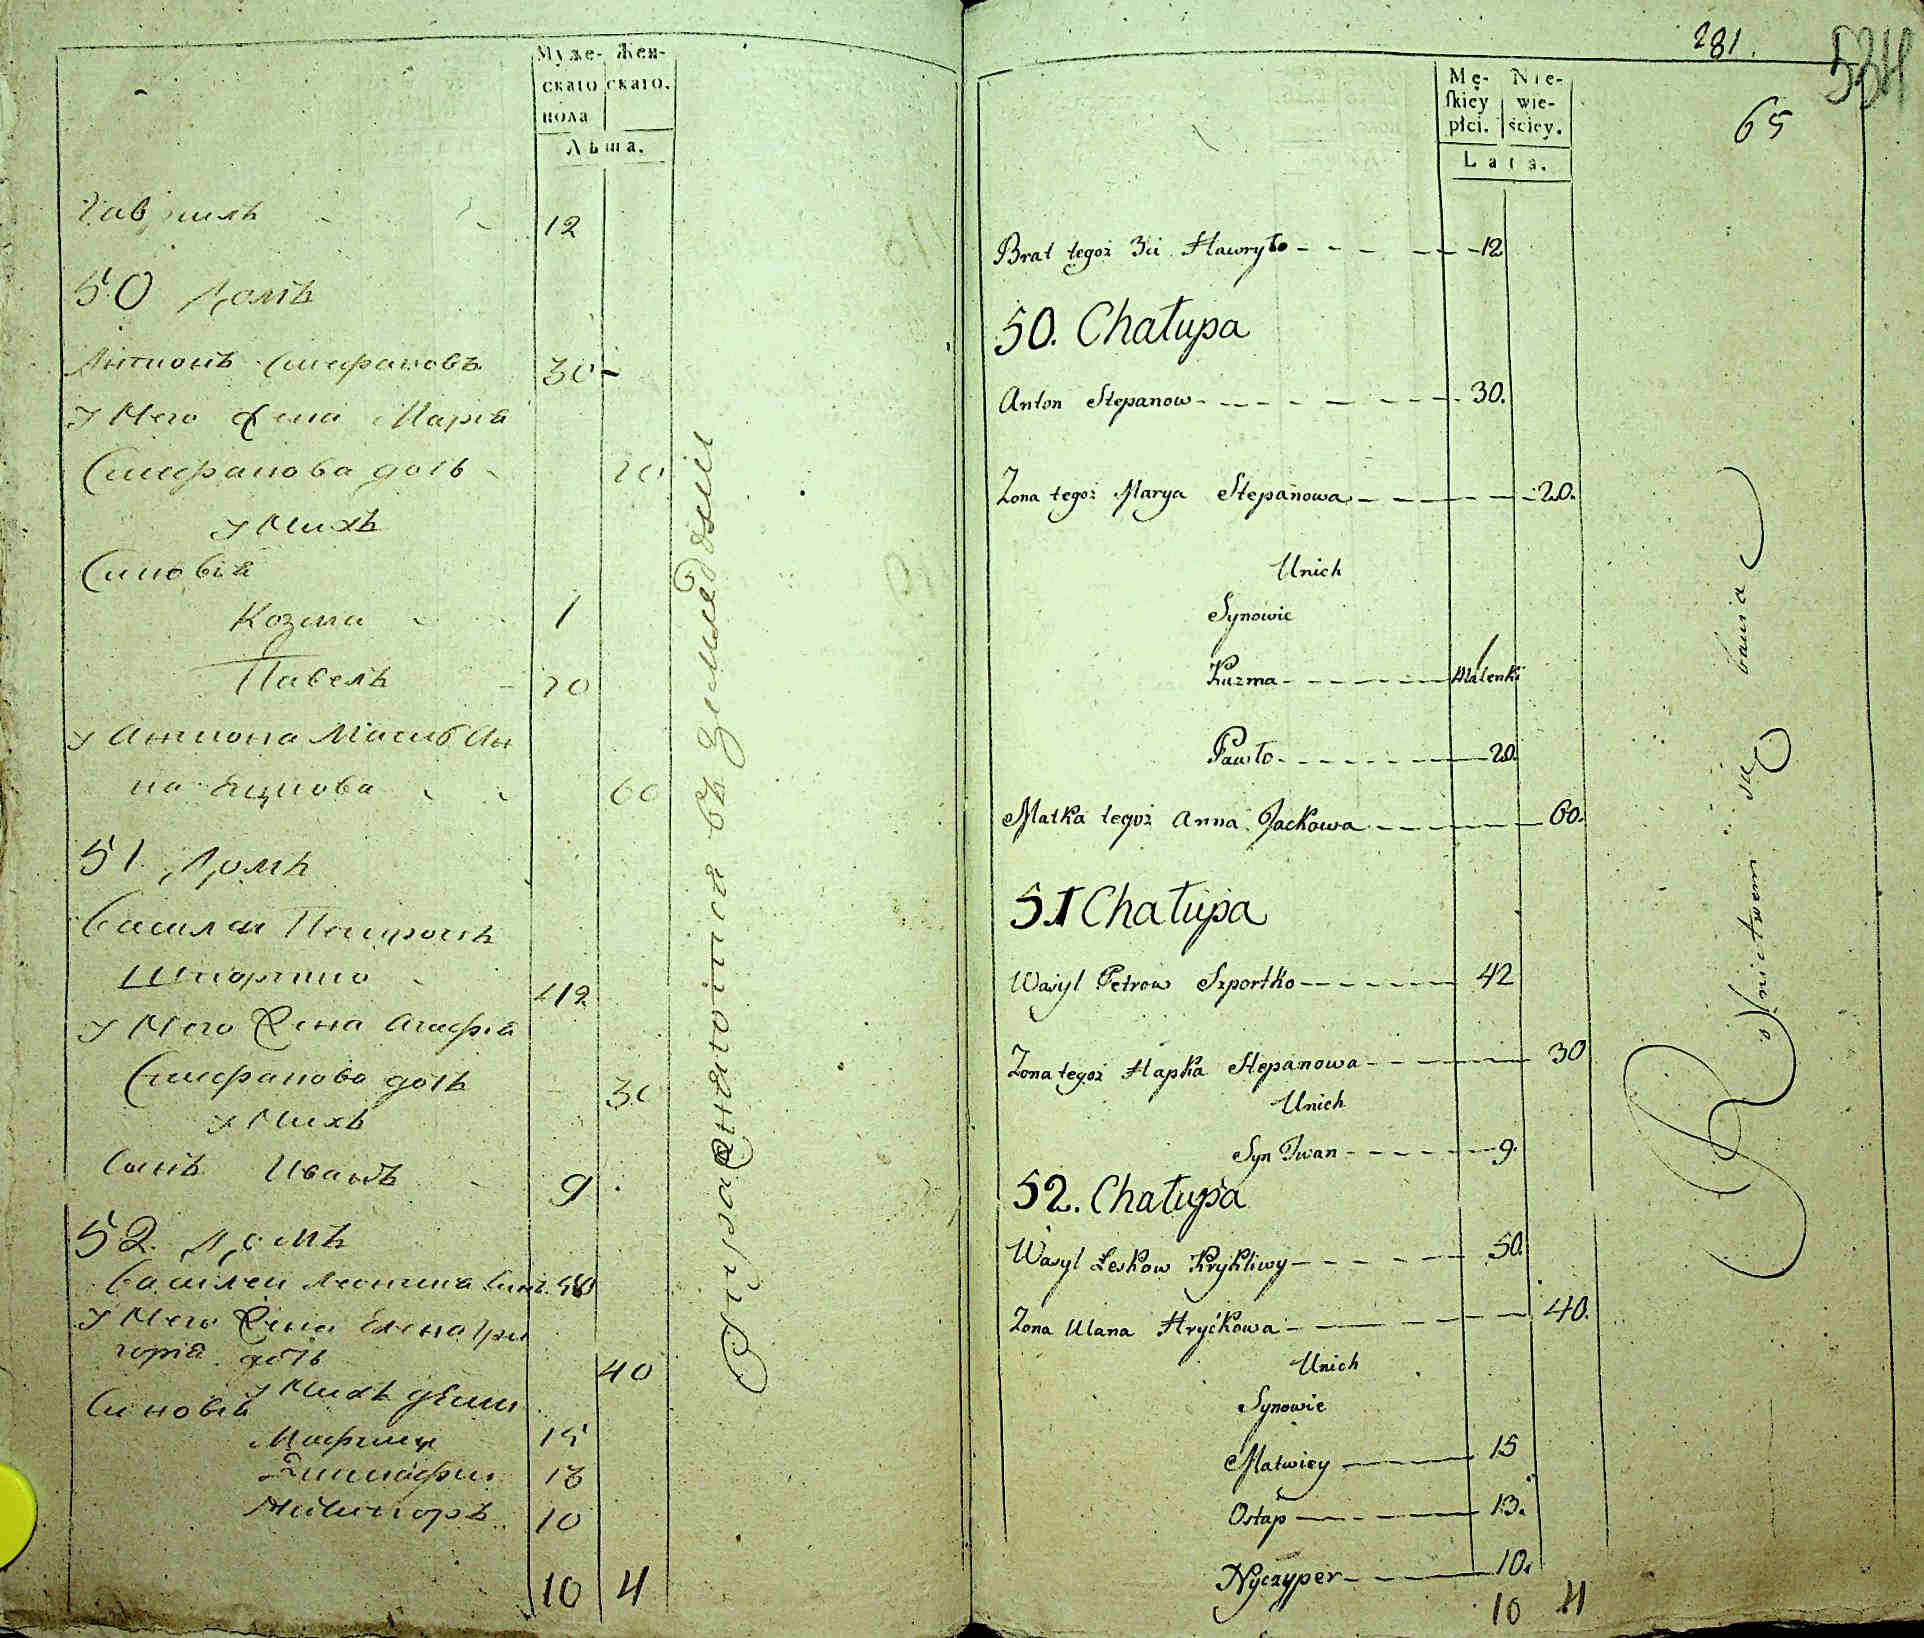 Муже- Жен-
скаго скаго.
пола
Лѣта.
Гавриилъ 12
50 Домъ
Антонъ Стефановъ 30
У Него Жена Марiя
Стефанова дочь 20
У Нихъ
Синовiя
Козма 1
Павелъ 20
У Антона Мать Ан
на Яцкова 60
51 Домъ
Василей Петровъ
Шпортко 42
У Него Жена Агафiя
Стефанова дочь 30
У Нихъ
Сынъ Иванъ 9
52. Домъ
Василей Леонтiя Синъ 50
У Него Жена Елена Гри
горiя дочь 40
У Нихъ дѣти
Синовiя
Матфей 15
Евстафiй 13
Никипоръ 10
10 4
Упражняются въ земледѣлiи
281.
534
65
Mę- Nie-
skiey wie-
płci. ściey.
Lata.
Brat tegoż 3ci Hawryło 12
50. Chałupa
Anton Stepanow 30.
Zona tegoż Marya Stepanowa 20.
Unich
Synowie
Kuzma 1 Malenki
Pawło 20.
Matka tegoż Anna Jackowa 60.
51 Chałupa
Wasyl Petrow Szportko 42
Zona tegoż Hapka Stepanowa 30
Unich
Syn Iwan 9.
52. Chałupa
Wasyl Leskow Krykliwy 50.
Zona Ulana Hryćkowa 40.
Unich
Synowie
Matwiey 15
Ostap 13.
Nyczyper 10.
10 4
Rolnictwem się bawią